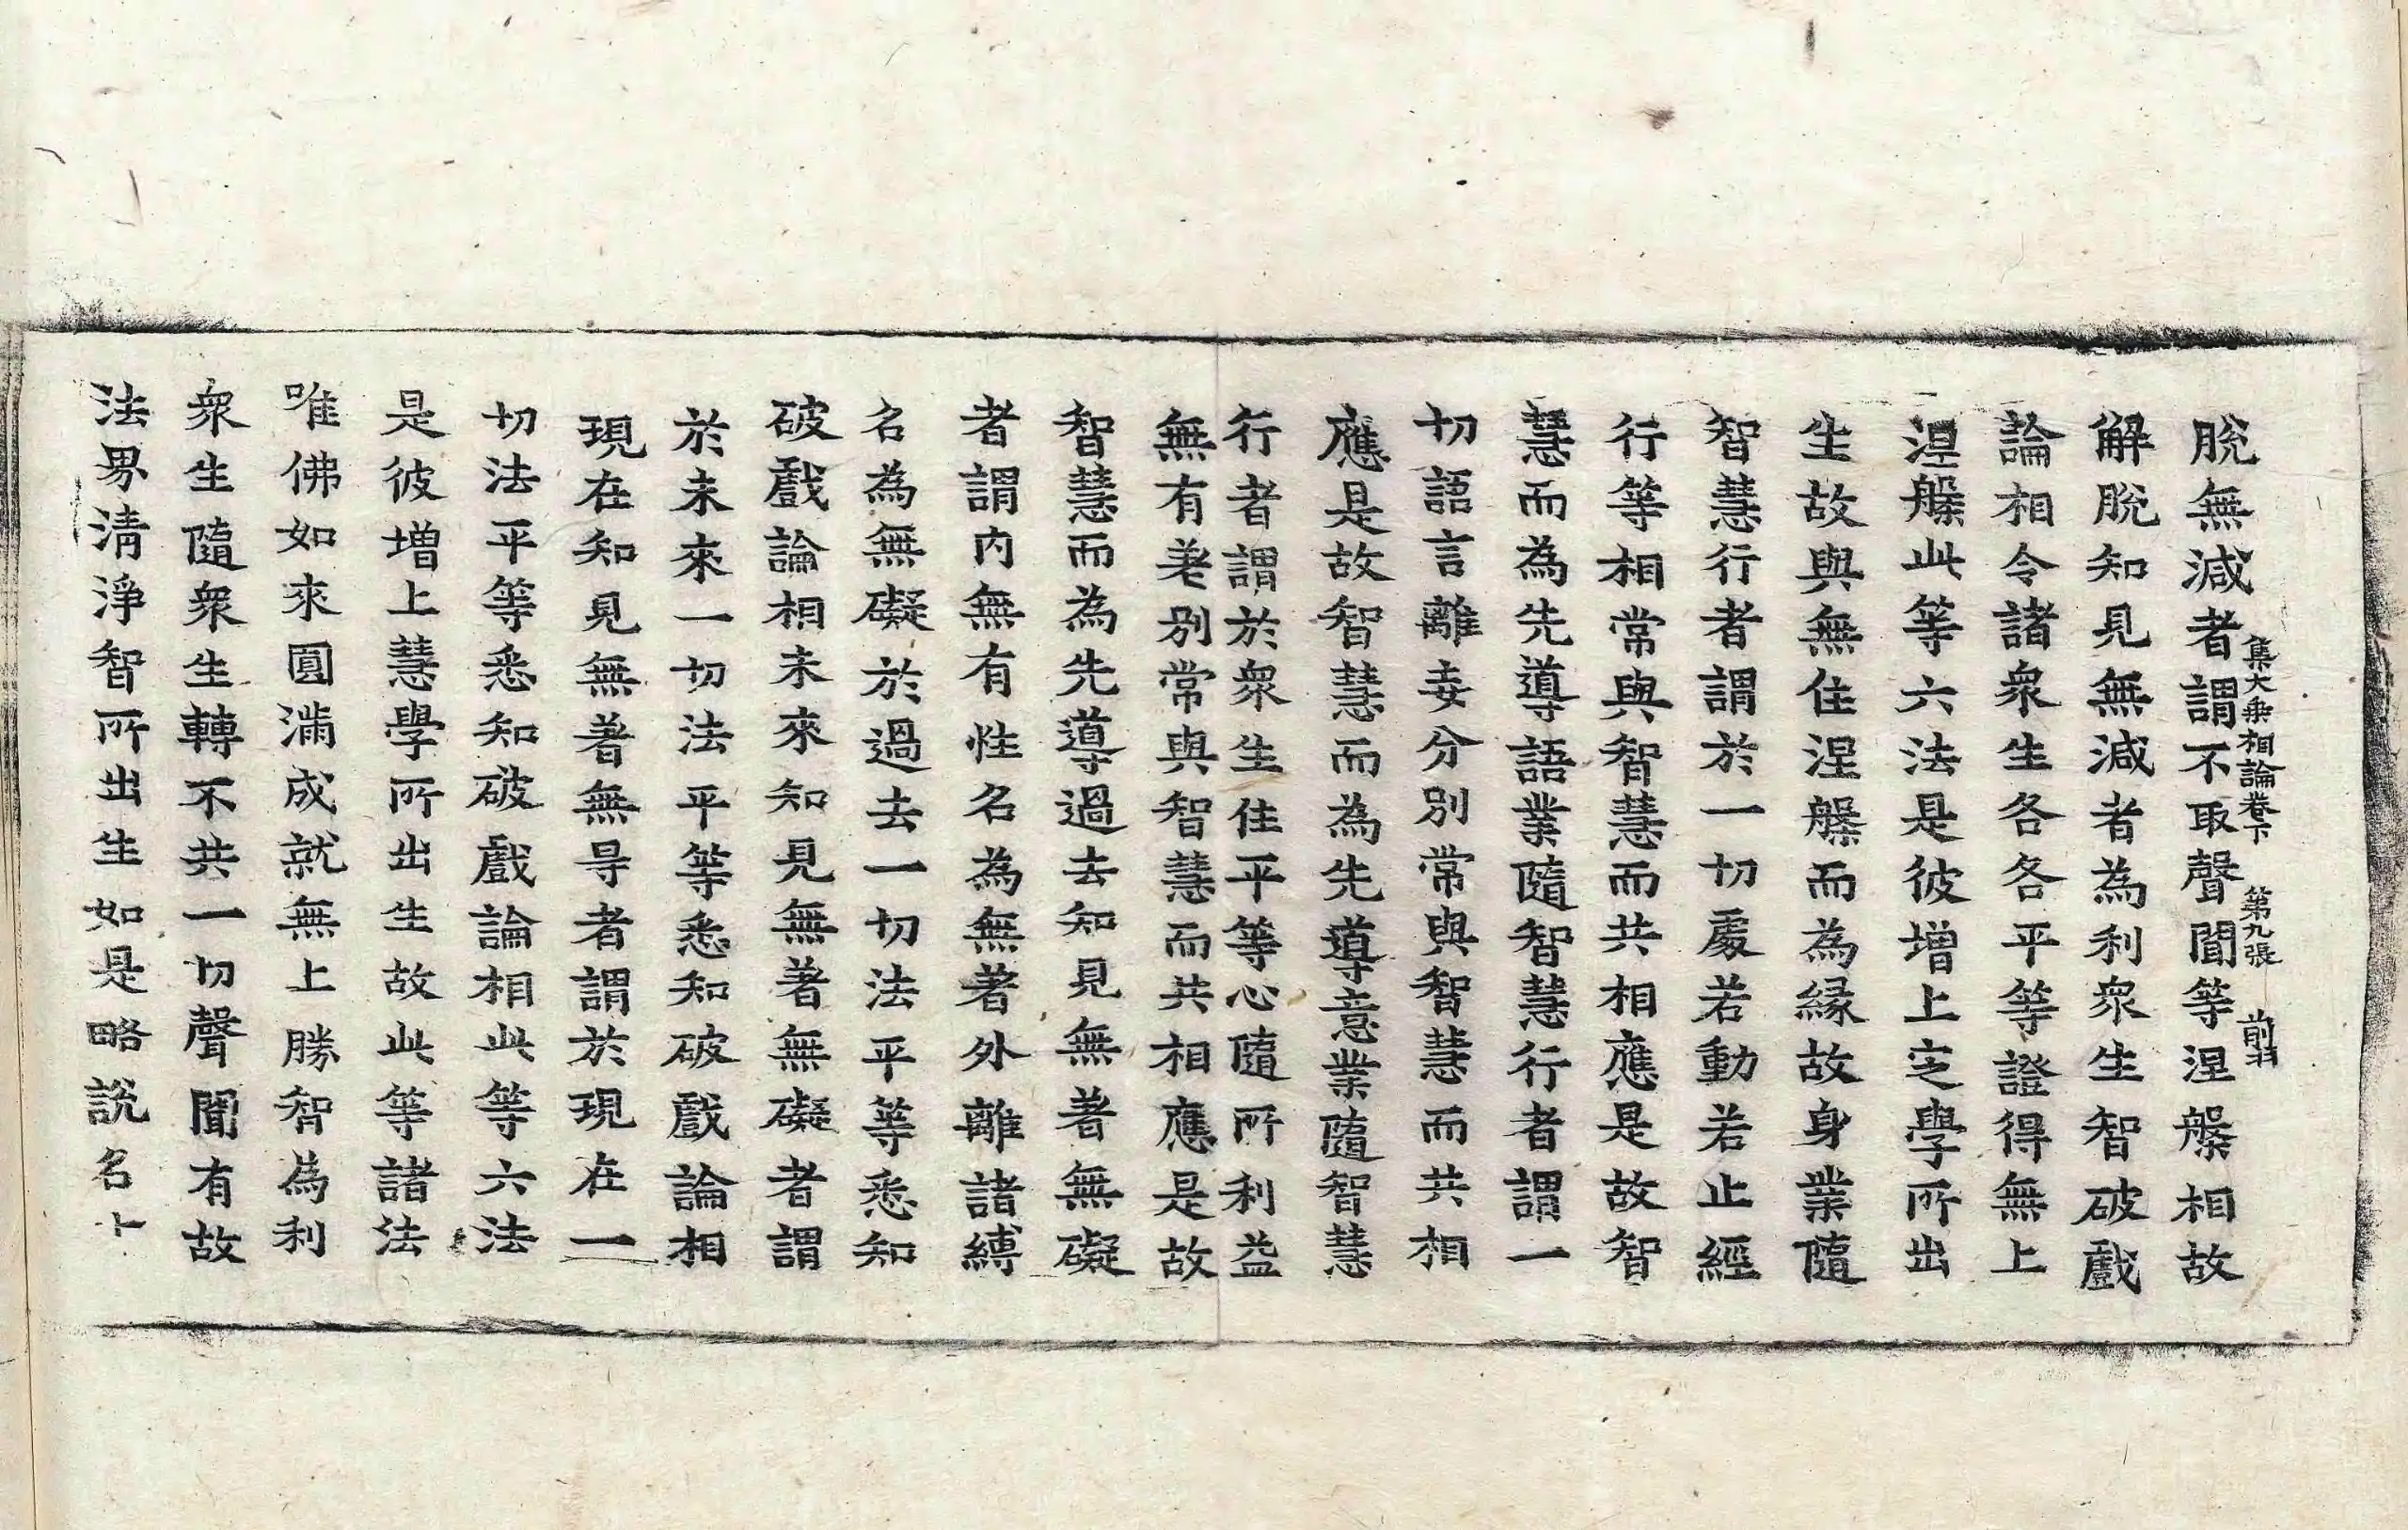 集大乘相論卷下 第九張 前羽
脫無減者謂不取聲聞等涅槃相故
解脫知見無減者為利衆生智破戲
論相令諸衆生各各平等證得無上
涅槃此等六法是彼增上定學所出
生故與無住涅槃而為緣故身業隨
智慧行者謂於一切處若動若止經
行等相常與智慧而共相應是故智
慧而為先導語業隨智慧行者謂一
切語言離妄分別常與智慧而共相
應是故智慧而為先導意業隨智慧
行者謂於衆生住平等心隨所利益
無有差別常與智慧而共相應是故
智慧而為先導過去知見無著無礙
者謂內無有性名為無著外離諸縛
名為無礙於過去一切法平等悉知
破戲論相未來知見無著無礙者謂
於未來一切法平等悉知破戲論相
現在知見無著無㝵者謂於現在一
切法平等悉知破戲論相此等六法
是彼增上慧學所出生故此等諸法
唯佛如來圓滿成就無上勝智為利
衆生隨衆生轉不共一切聲聞有故
法界清淨智所出生如是略說名上